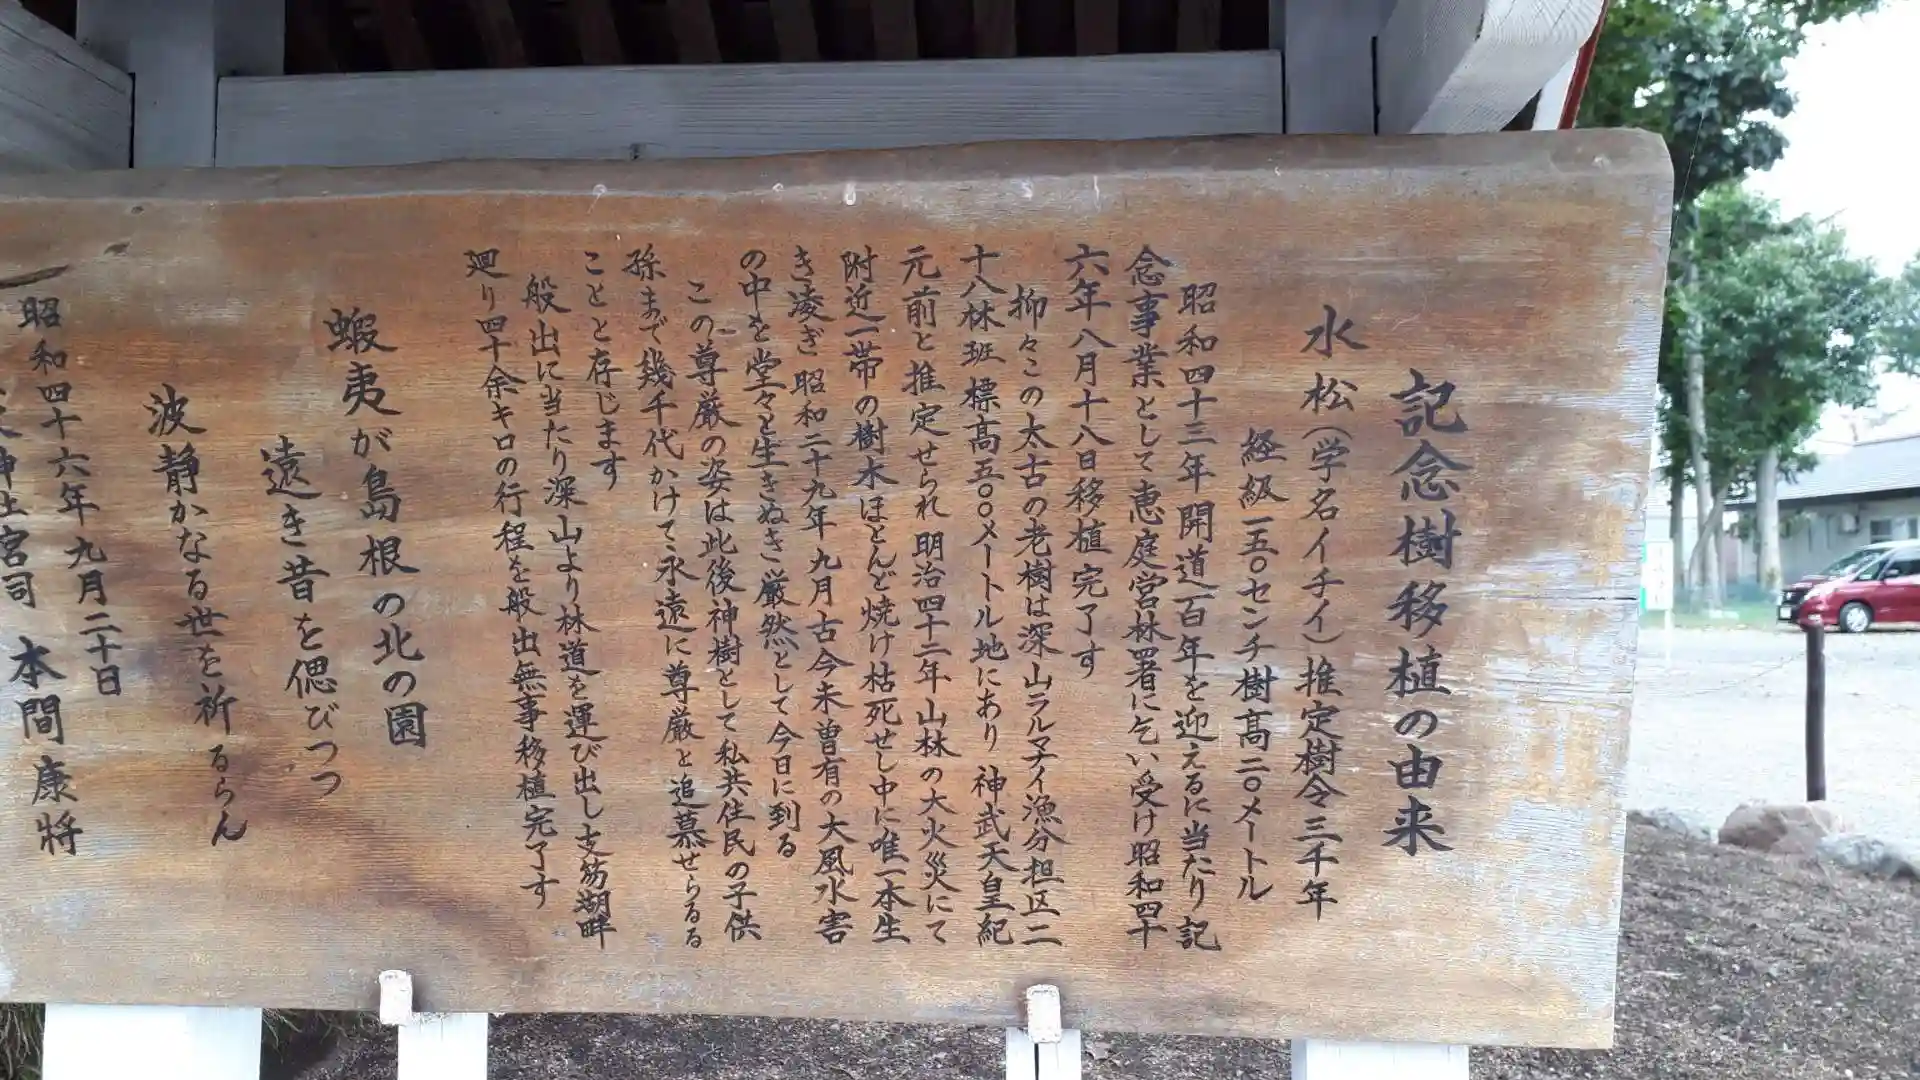 記念樹移植の由来
水松(学名イチイ)推定樹令三千年
経級一五〇センチ樹高二〇メートル
昭和四十三年開道百年を迎えるに当たり記
念事業として恵庭営林署に乞い受け昭和四十
六年八月十八日移植完了す
抑々この太古の老樹は深山ラルマナイ漁分担区二
十八林班標高五〇〇メートル地にあり神武天皇紀
元前と推定せられ明治四十二年山林の大火災にて
附近一帯の樹木ほとんど焼け枯死せし中に唯一本生
き凌ぎ昭和二十九年九月古今未曽有の大風水害
の中を堂々と生きぬき厳然として今日に到る
この尊厳の姿は此後神樹として私共住民の子供
孫まで幾千代かけて永遠に尊厳と追慕せらるる
ことと存じます
般出に当たり深山より林道を運び出し支笏湖畔
廻り四十余キロの行程を般出無事移植完了す
蝦夷が島根の北の園
遠き昔を偲びつつ
波静かなる世を祈るらん
昭和四十六年九月二十日
神社宮司 本間康將